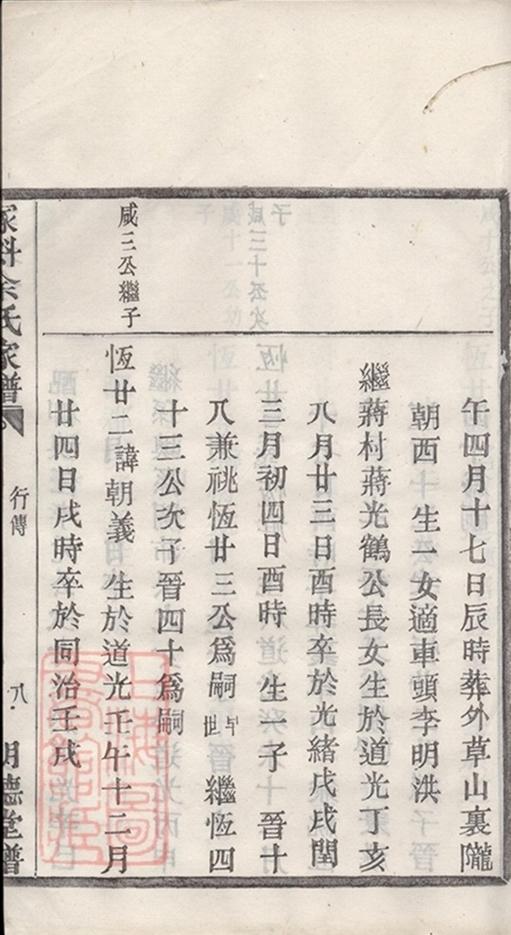 午四月十七日辰時葬外草山裏隴
朝西 生一女適車頭李明洪
繼蔣村蔣光鶴公長女生於道光丁亥
八月廿三日酉時卒於光緒戌戌閏
三月初四日酉時 生一子 晉十
八兼祧恆廿三公爲嗣早世 繼恆四
十三公次子晉四十爲嗣
咸三公繼子
恆廿二諱朝義 生於道光壬午十二月
廿四日戌時卒於同治壬戌
余氏家譜 行傳 八 明德堂譜